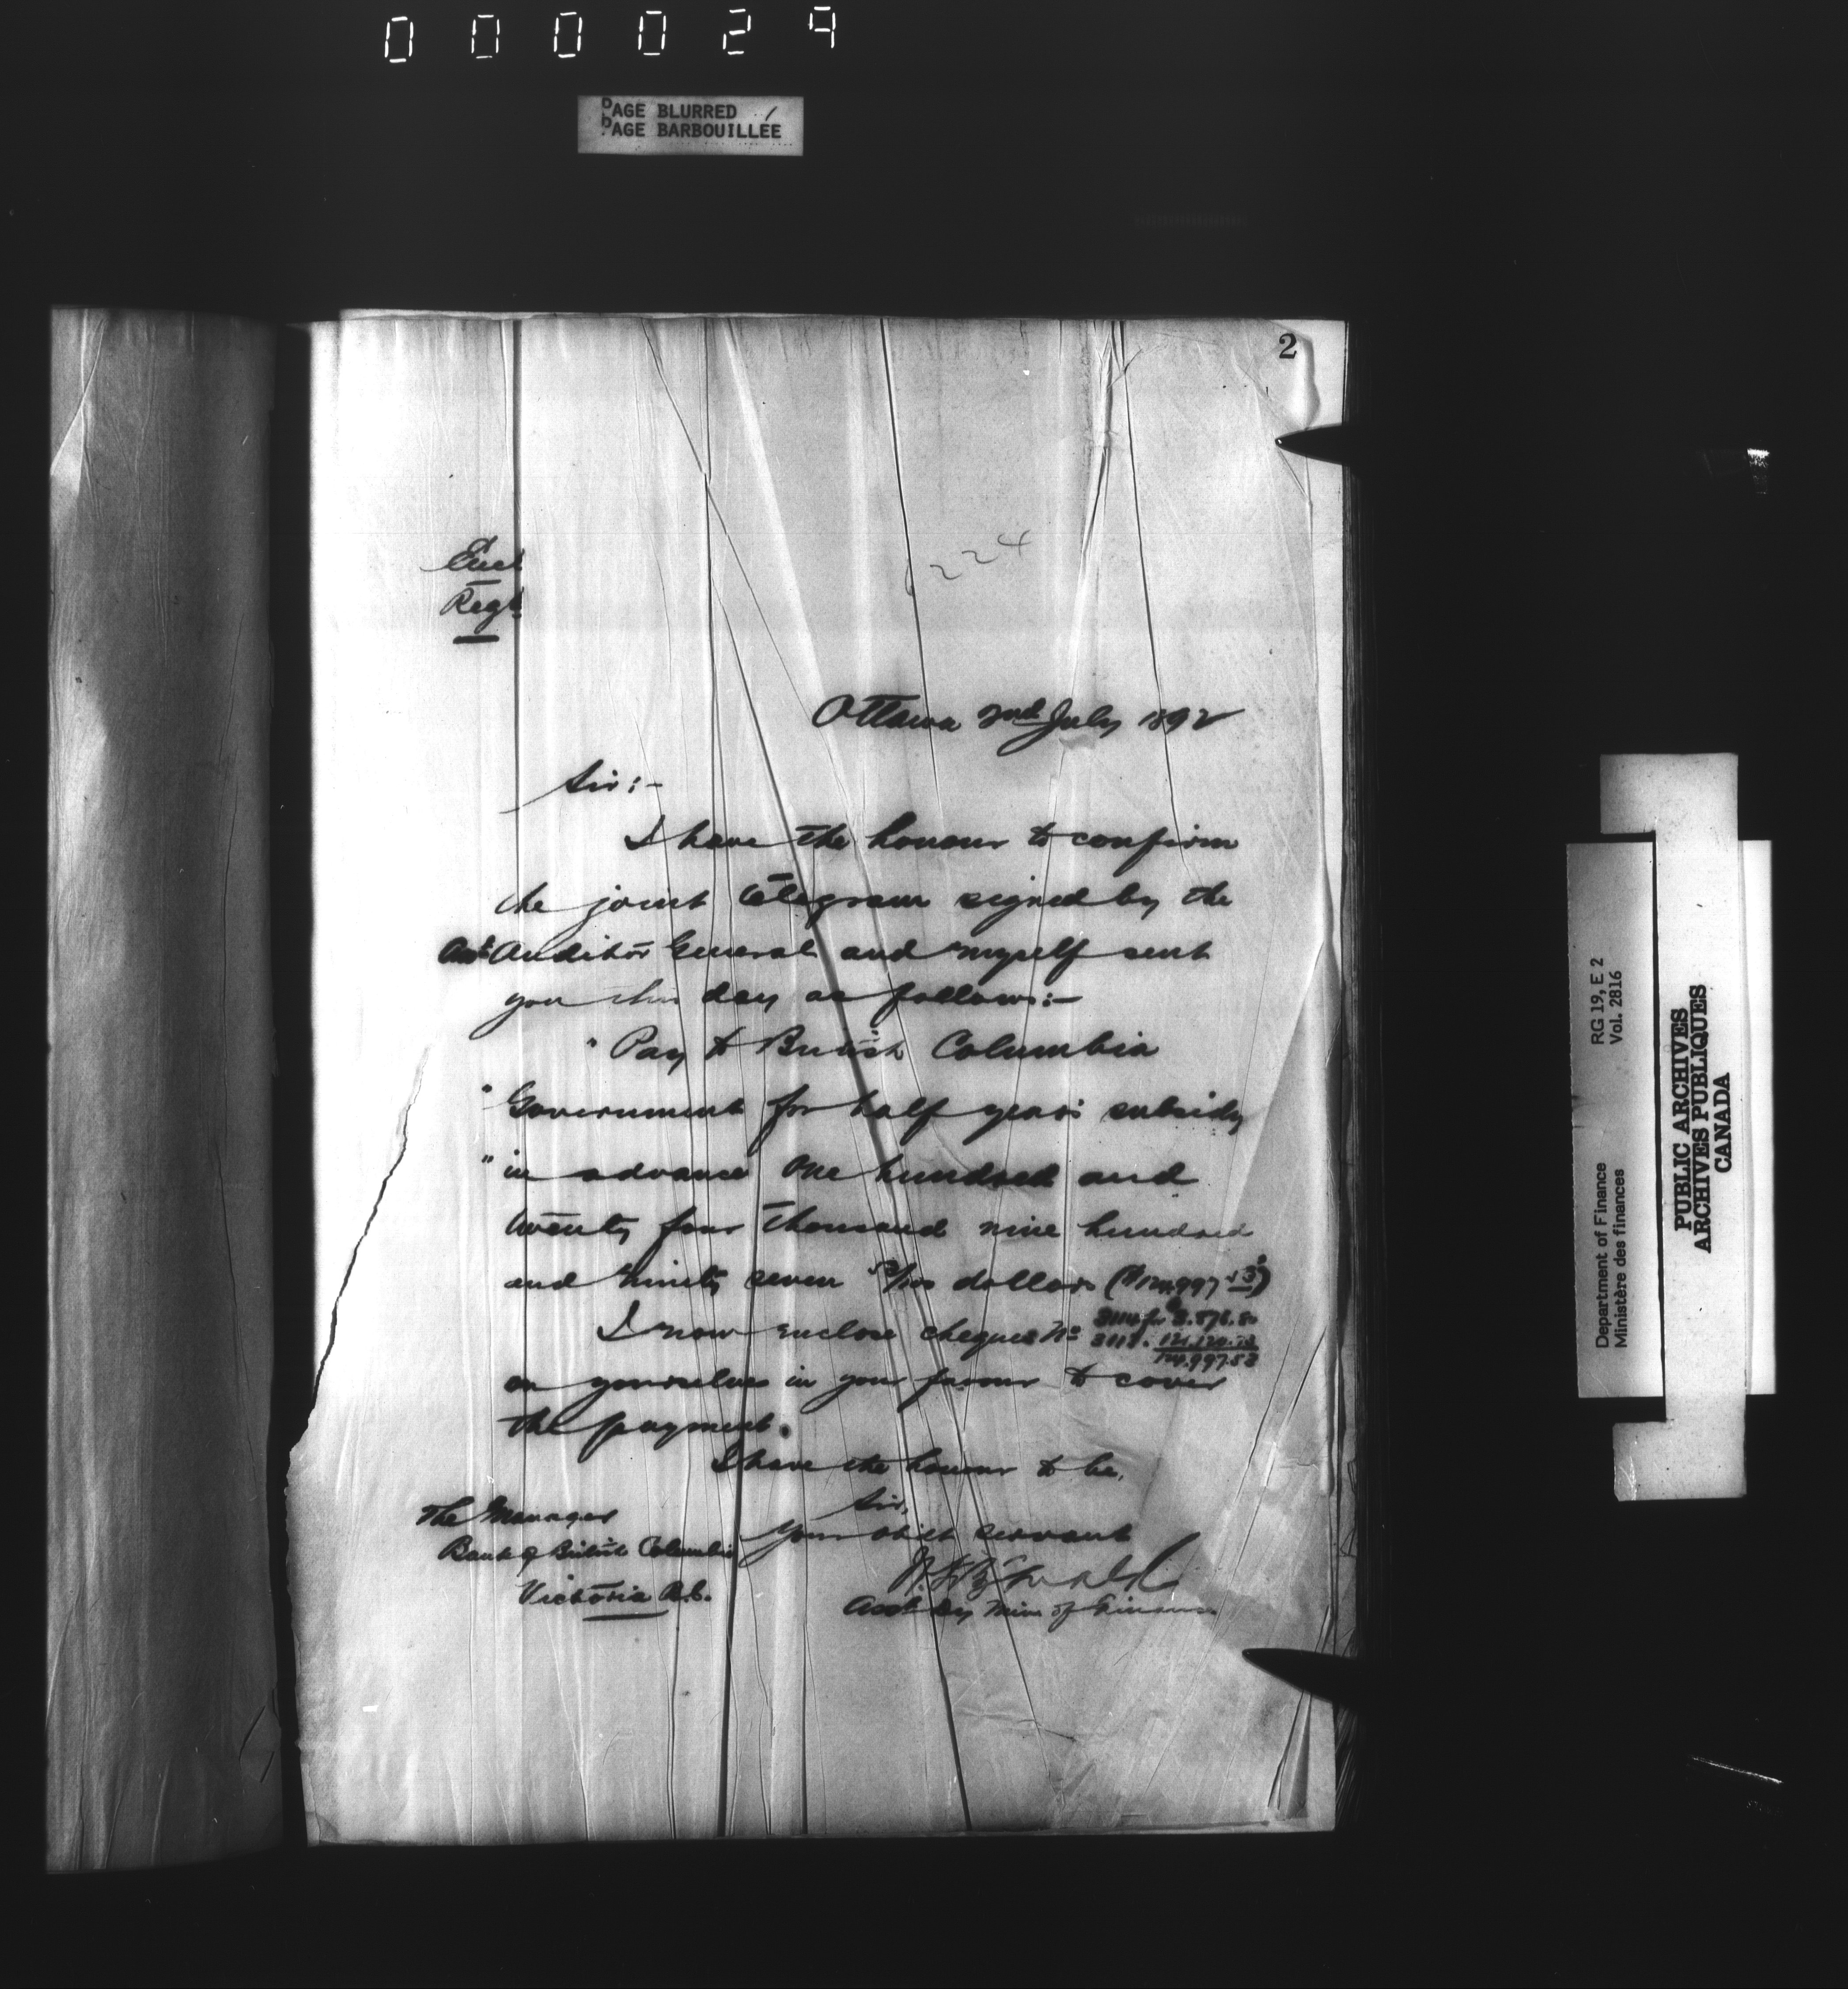 000029
PAGE BLURRED
PAGE BARBOUILLÉE
2
Encl
Regd
224
Ottawa 2nd July 1892
Sir:-
I have the honour to confirm
the joint telegram signed by the
Asst Auditor General and myself sent
you this day as follows:-
" Pay to British Columbia
" Government for half years subsidy
" in advance One hundred and
twenty four thousand nine hundred
and ninety seven 53/100 dollars ($124,997.53)
I now enclose cheques No 3114 for 3.876.80
124.997.53
on yourselves in your favour to cover
the payment.
I have the honour to be,
Sir,
Your obdt servant
Asst Dy Min of Finance
The Manager
Bank of British Columbia
Victoria B.C.
RG 19, E 2
Vol. 2816
Department of Finance
Ministère des finances
PUBLIC ARCHIVES
ARCHIVES PUBLIQUES
CANADA